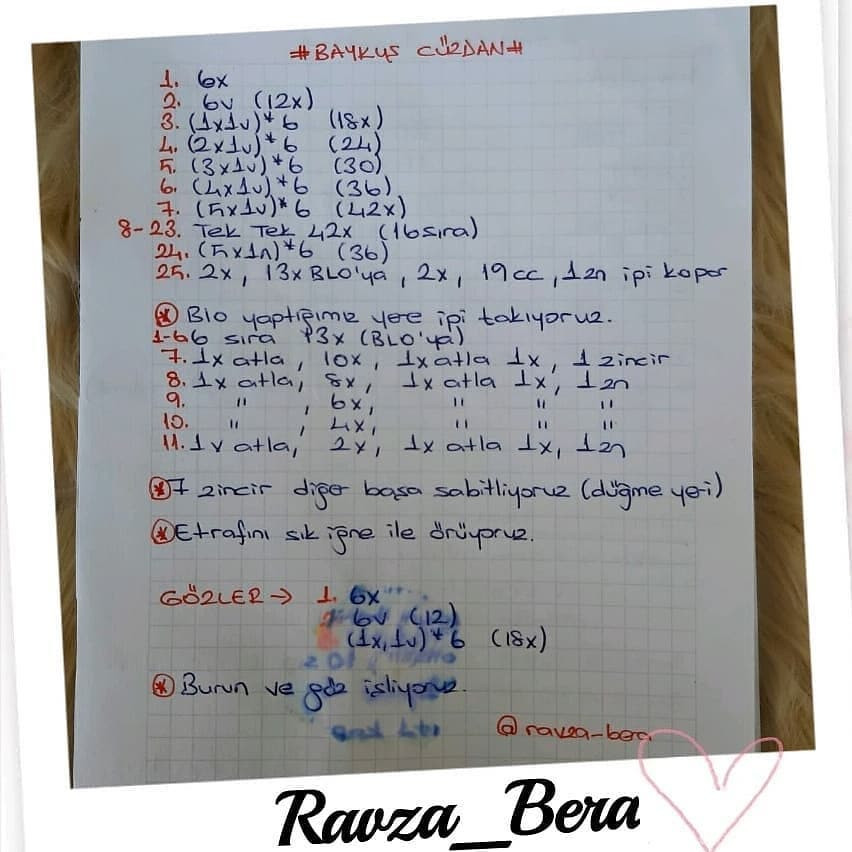 #BAYKUŞ CÜZDAN#
1. 6x
2. 6v (12x)
3. (1x1v)*6 (18x)
4. (2x1v)*6 (24)
5. (3x1v)*6 (30)
6. (4x1v)*6 (36)
7. (5x1v)*6 (42x)
8-23. Tek Tek 42x (16sıra)
24. (5x1n)*6 (36)
25. 2x, 13x BLO'ya, 2x, 19cc, 1zn ipi kopar
* Blo yaptığımız yere ipi takıyoruz.
sıra 13x (BLO'ya)
7. 1x atla, 10x, 1x atla 1x, 1 zincir
8. 1x atla, 8x, 1x atla 1x, 1zn
9. " , 6x, " " "
10. " , 4x, " " "
11. 1v atla, 2x, 1x atla 1x, 1zn
* 7 zincir diğer başa sabitliyoruz (düğme yeri)
* Etrafını sık iğne ile örüyoruz.
GÖZLER → 1. 6x
6v (12)
(1x,1v)*6 (18x)
* Burun ve göz işliyoruz.
@ravza-bera
Ravza_Bera